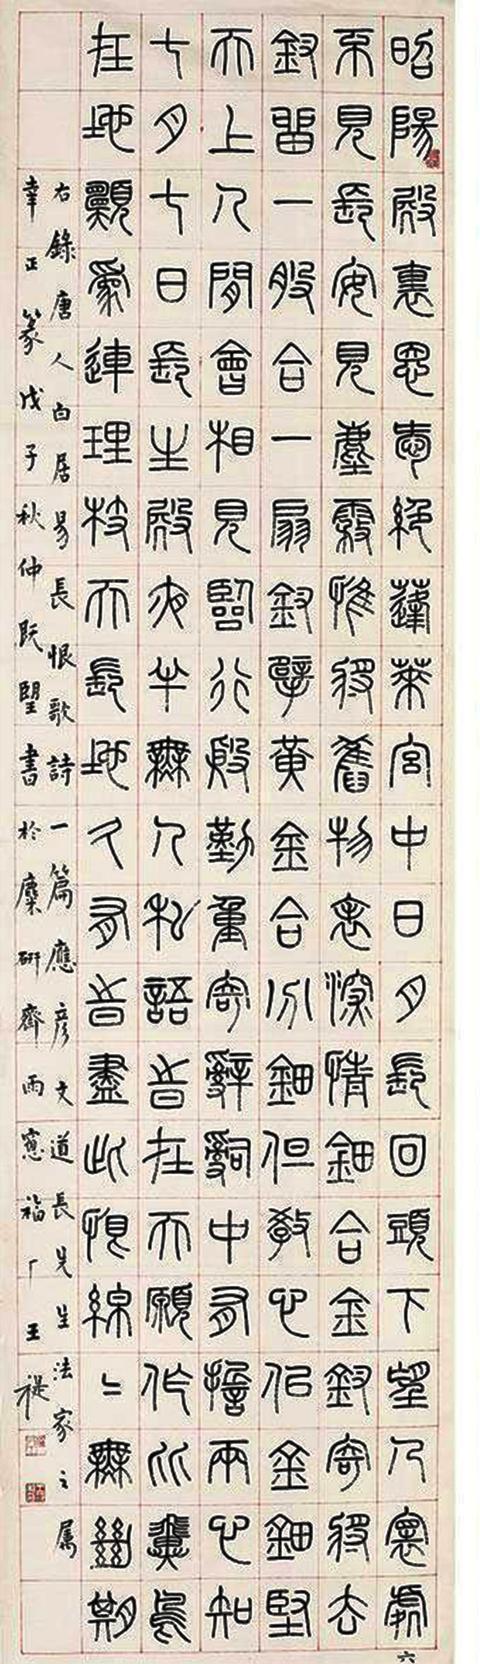 昭陽殿裏恩愛絕蓬萊宮中日月長回頭下望人寰處
六
不見長安見塵霧惟將舊物表深情鈿合金釵寄將去
釵留一股合一扇釵擘黃金合分鈿但教心佀金鈿堅
天上人間會相見臨行殷勤重寄辭詞中有誓兩心知
七月七日長生殿夜半無人私語旹在天願作比翼鳥
在地願為連理枝天長地久有旹盡此恨綿〻無絕期
右錄唐人白居易長恨歌詩一篇應彥文道長先生法家之属
幸正篆戊子秋仲既朢書於麋研齋雨窻福厂王禔